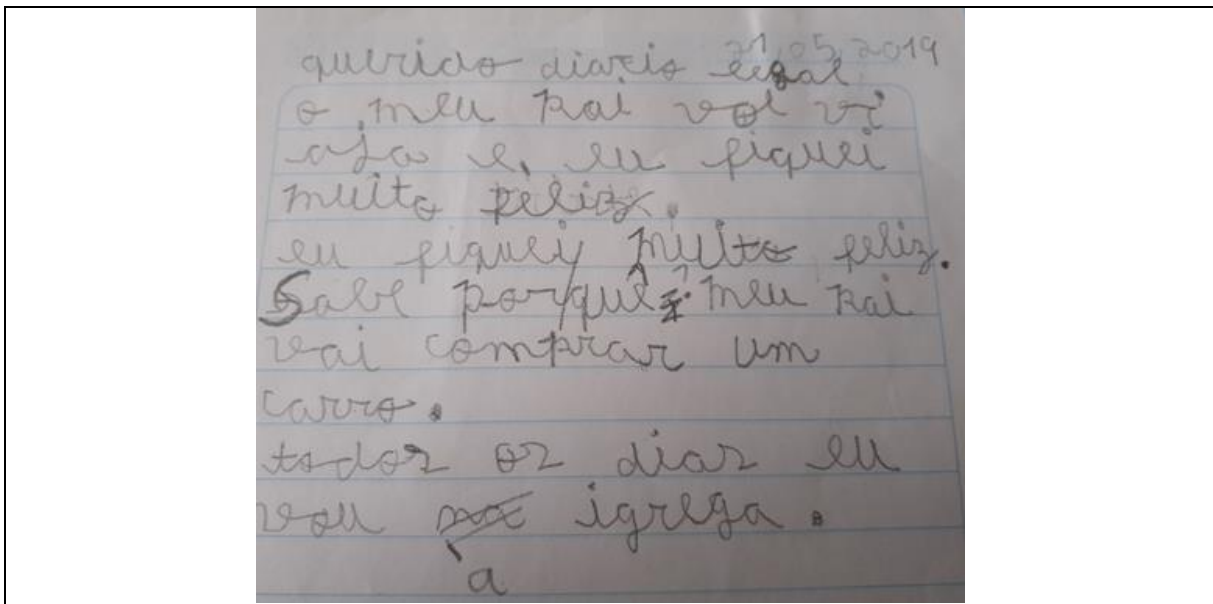 querido diario legal 21/05/2019
o meu pai voi vi
aja e, eu fiquei
muito feliz.
eu fiquei muito feliz.
Sabe por quê? meu pai
vai comprar um
carro.
todos os dias eu
vou na igrega.
a